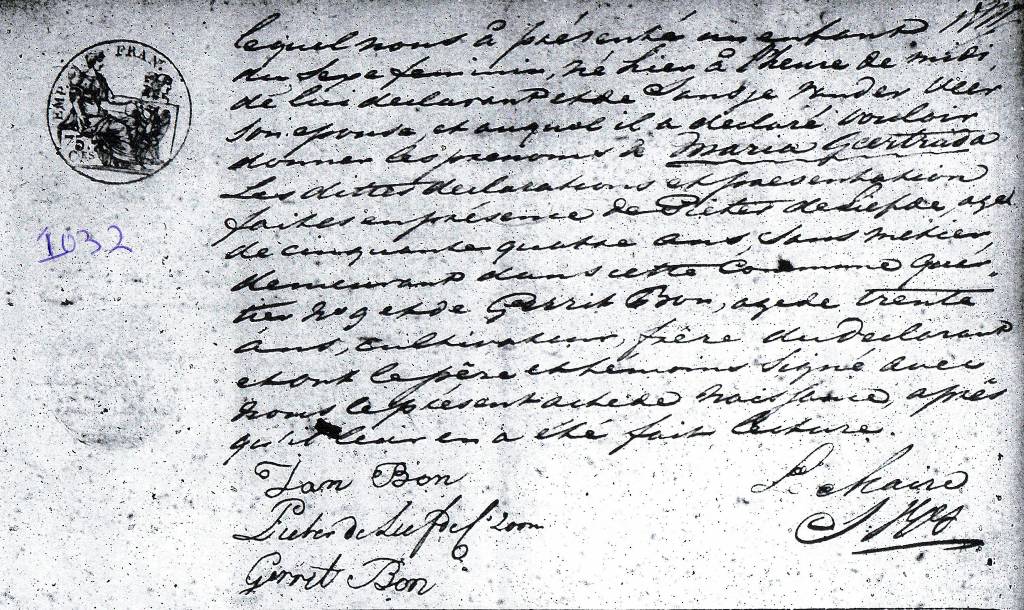 EMP. FRAN.
CES
1032
lequel nous à présenté un enfant
du sexe feminin, né hier à l'heure de midi,
de lui declarant et de Tansje vander Veer
son epouse, et auquel il a declaré vouloir
donner les prenoms de Maria Geertruda
Les dittes declarations et presentation
faites en présence de Pieter de Liefde, agé
de cinquante quatre ans, sans metier,
demeurant dans cette Commune Quar-
tier No 9 et de Gerrit Bon, age de trente
ans, cultivateur, frère du declarant
et ont le père et temoins signé avec
nous le présent acte de naissance, après
qu'il leur en a été fait lecture.
Jan Bon
Pieter de Liefde zoon
Gerret Bon
Le Maire